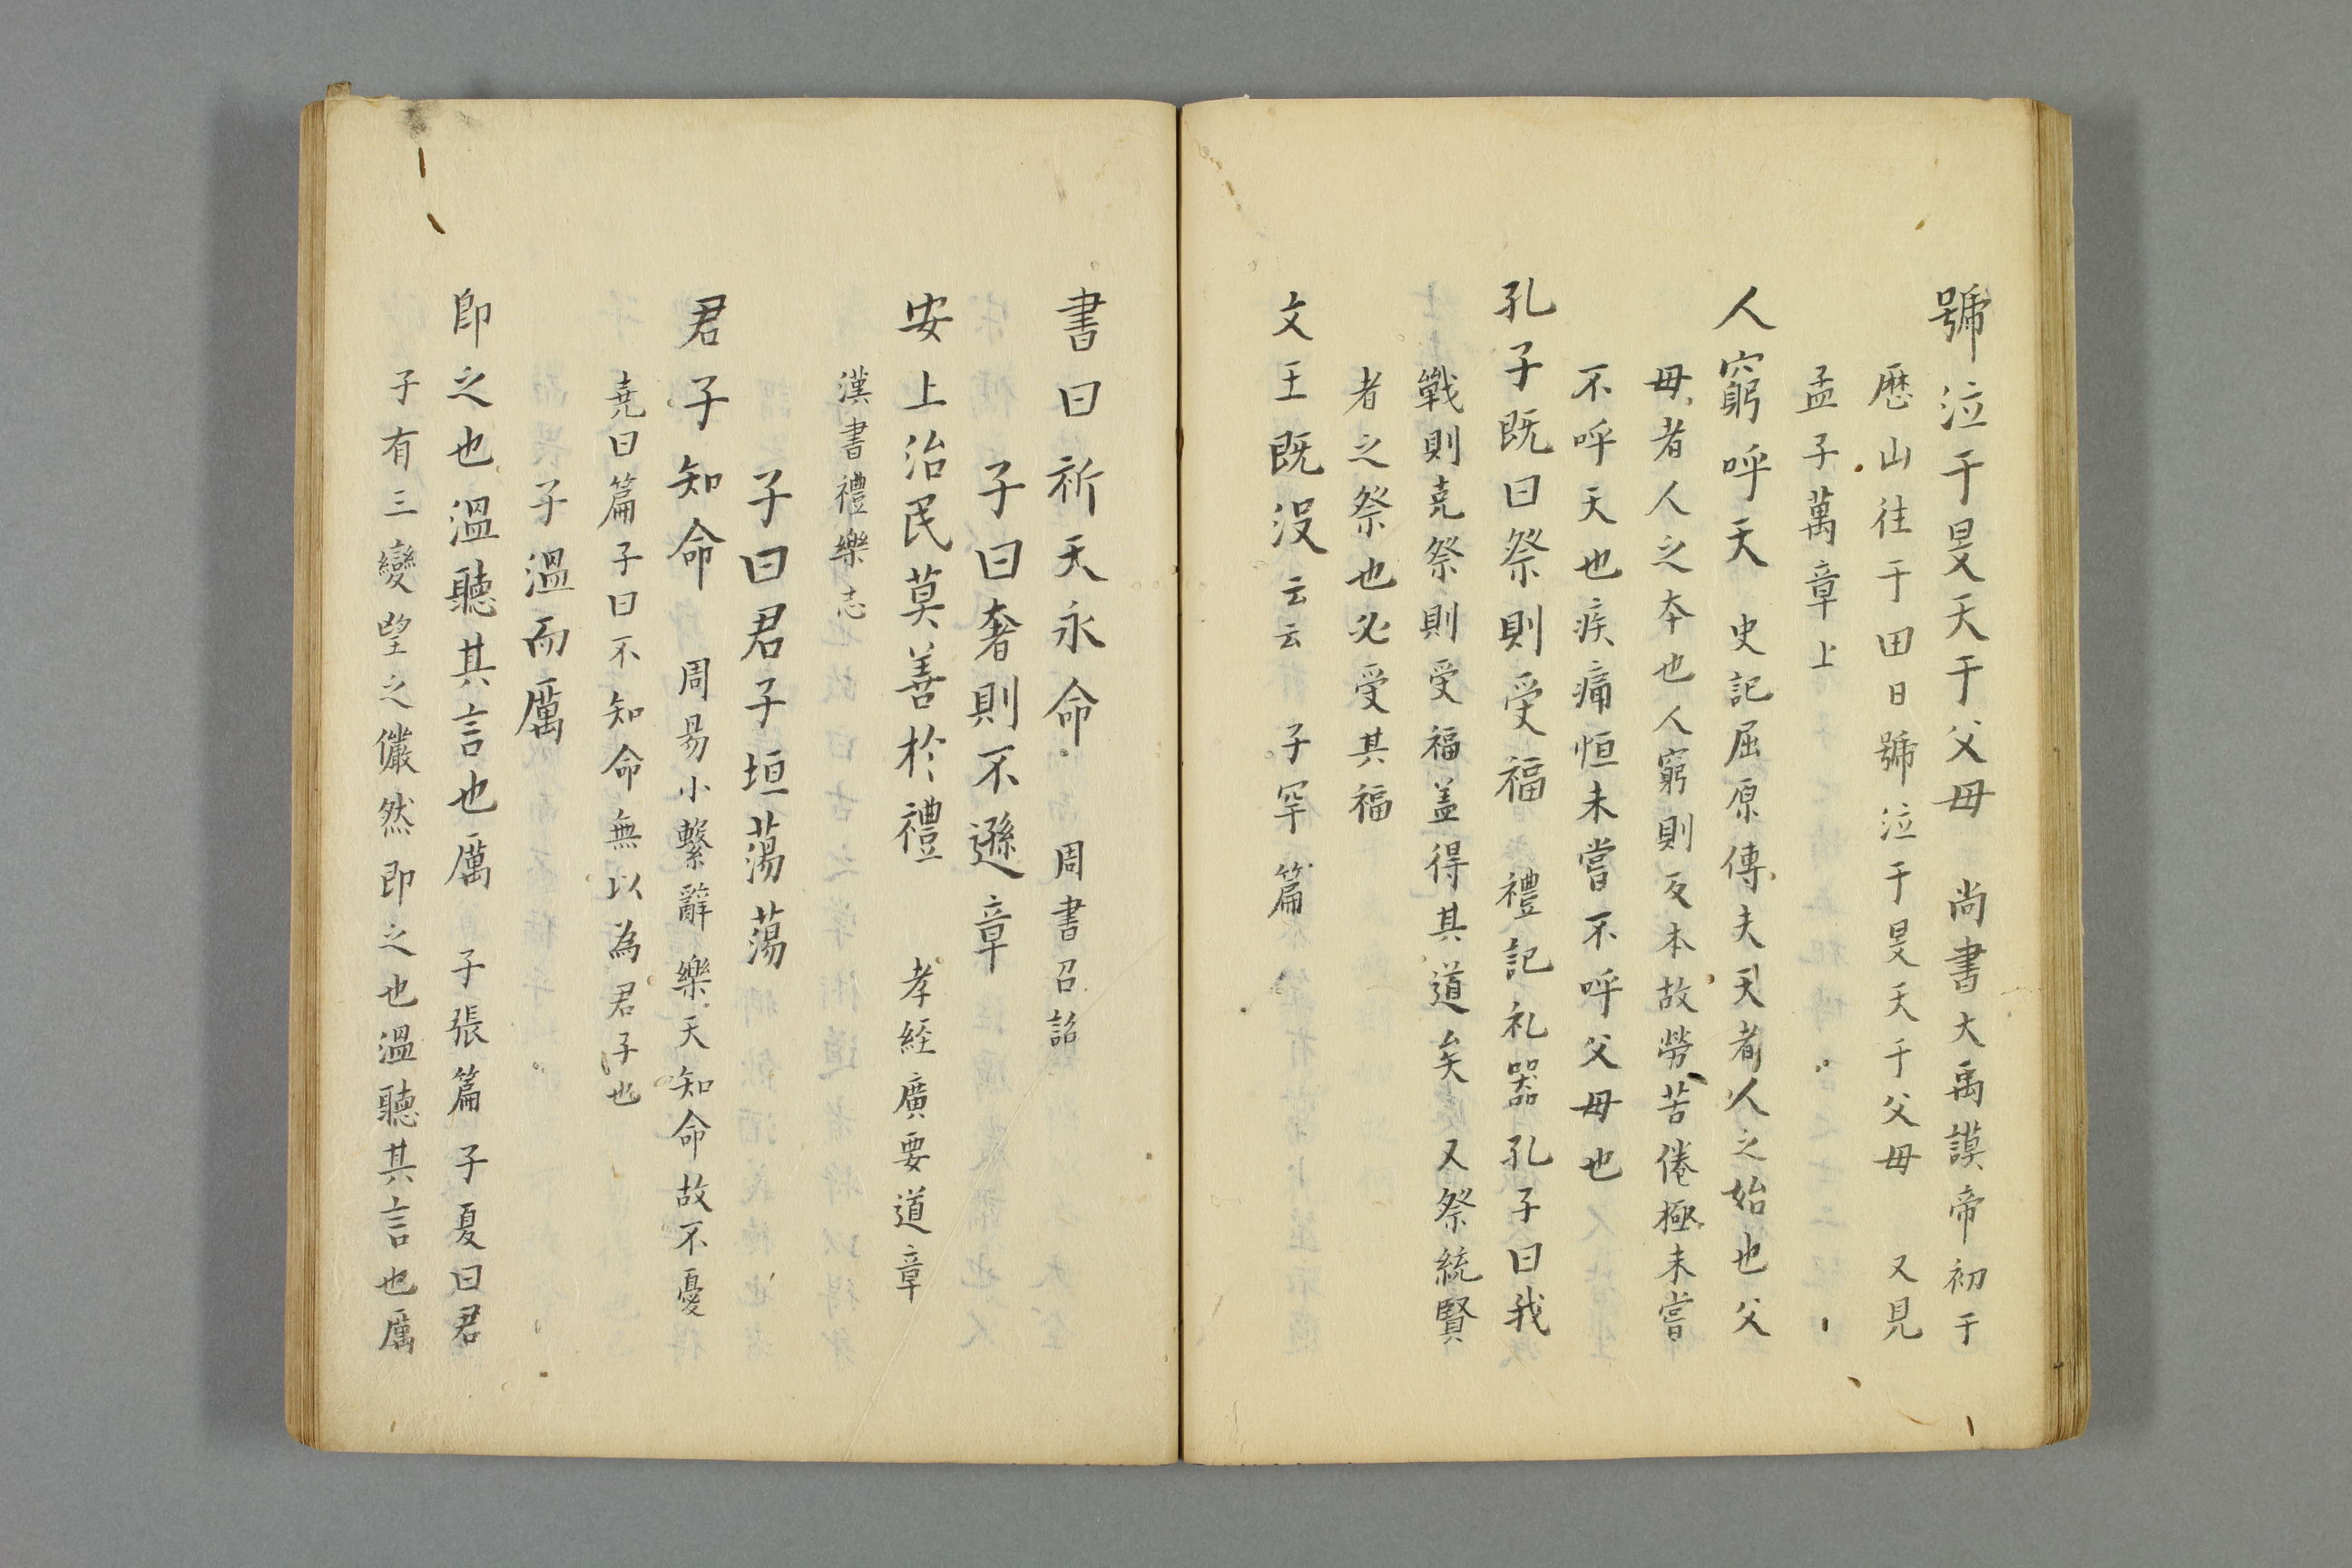 號泣于旻天于父母　尚書大禹謨帝初于
歴山往于田日號泣于旻天于父母　又見
孟子萬章上
人窮呼天　史記屈原傳夫天者人之始也父
母者人之本也人窮則反本故勞苦倦極未嘗
不呼天也疾痛恒未嘗不呼父母也
孔子既曰祭則受福　禮記礼器孔子曰我
戰則克祭則受福盖得其道矣　又祭統賢
者之祭也必受其福
文王既没云云　子罕篇
書曰祈天永命　周書召詔
子曰奢則不遜章
安上治民莫善於禮　孝経廣要道章
漢書禮樂志
子曰君子垣蕩蕩
君子知命　周易小繫辭樂天知命故不憂
堯曰篇子曰不知命無以為君子也
子溫而厲
即之也溫聽其言也厲　子張篇子夏曰君
子有三變望之儼然即之也溫聽其言也厲